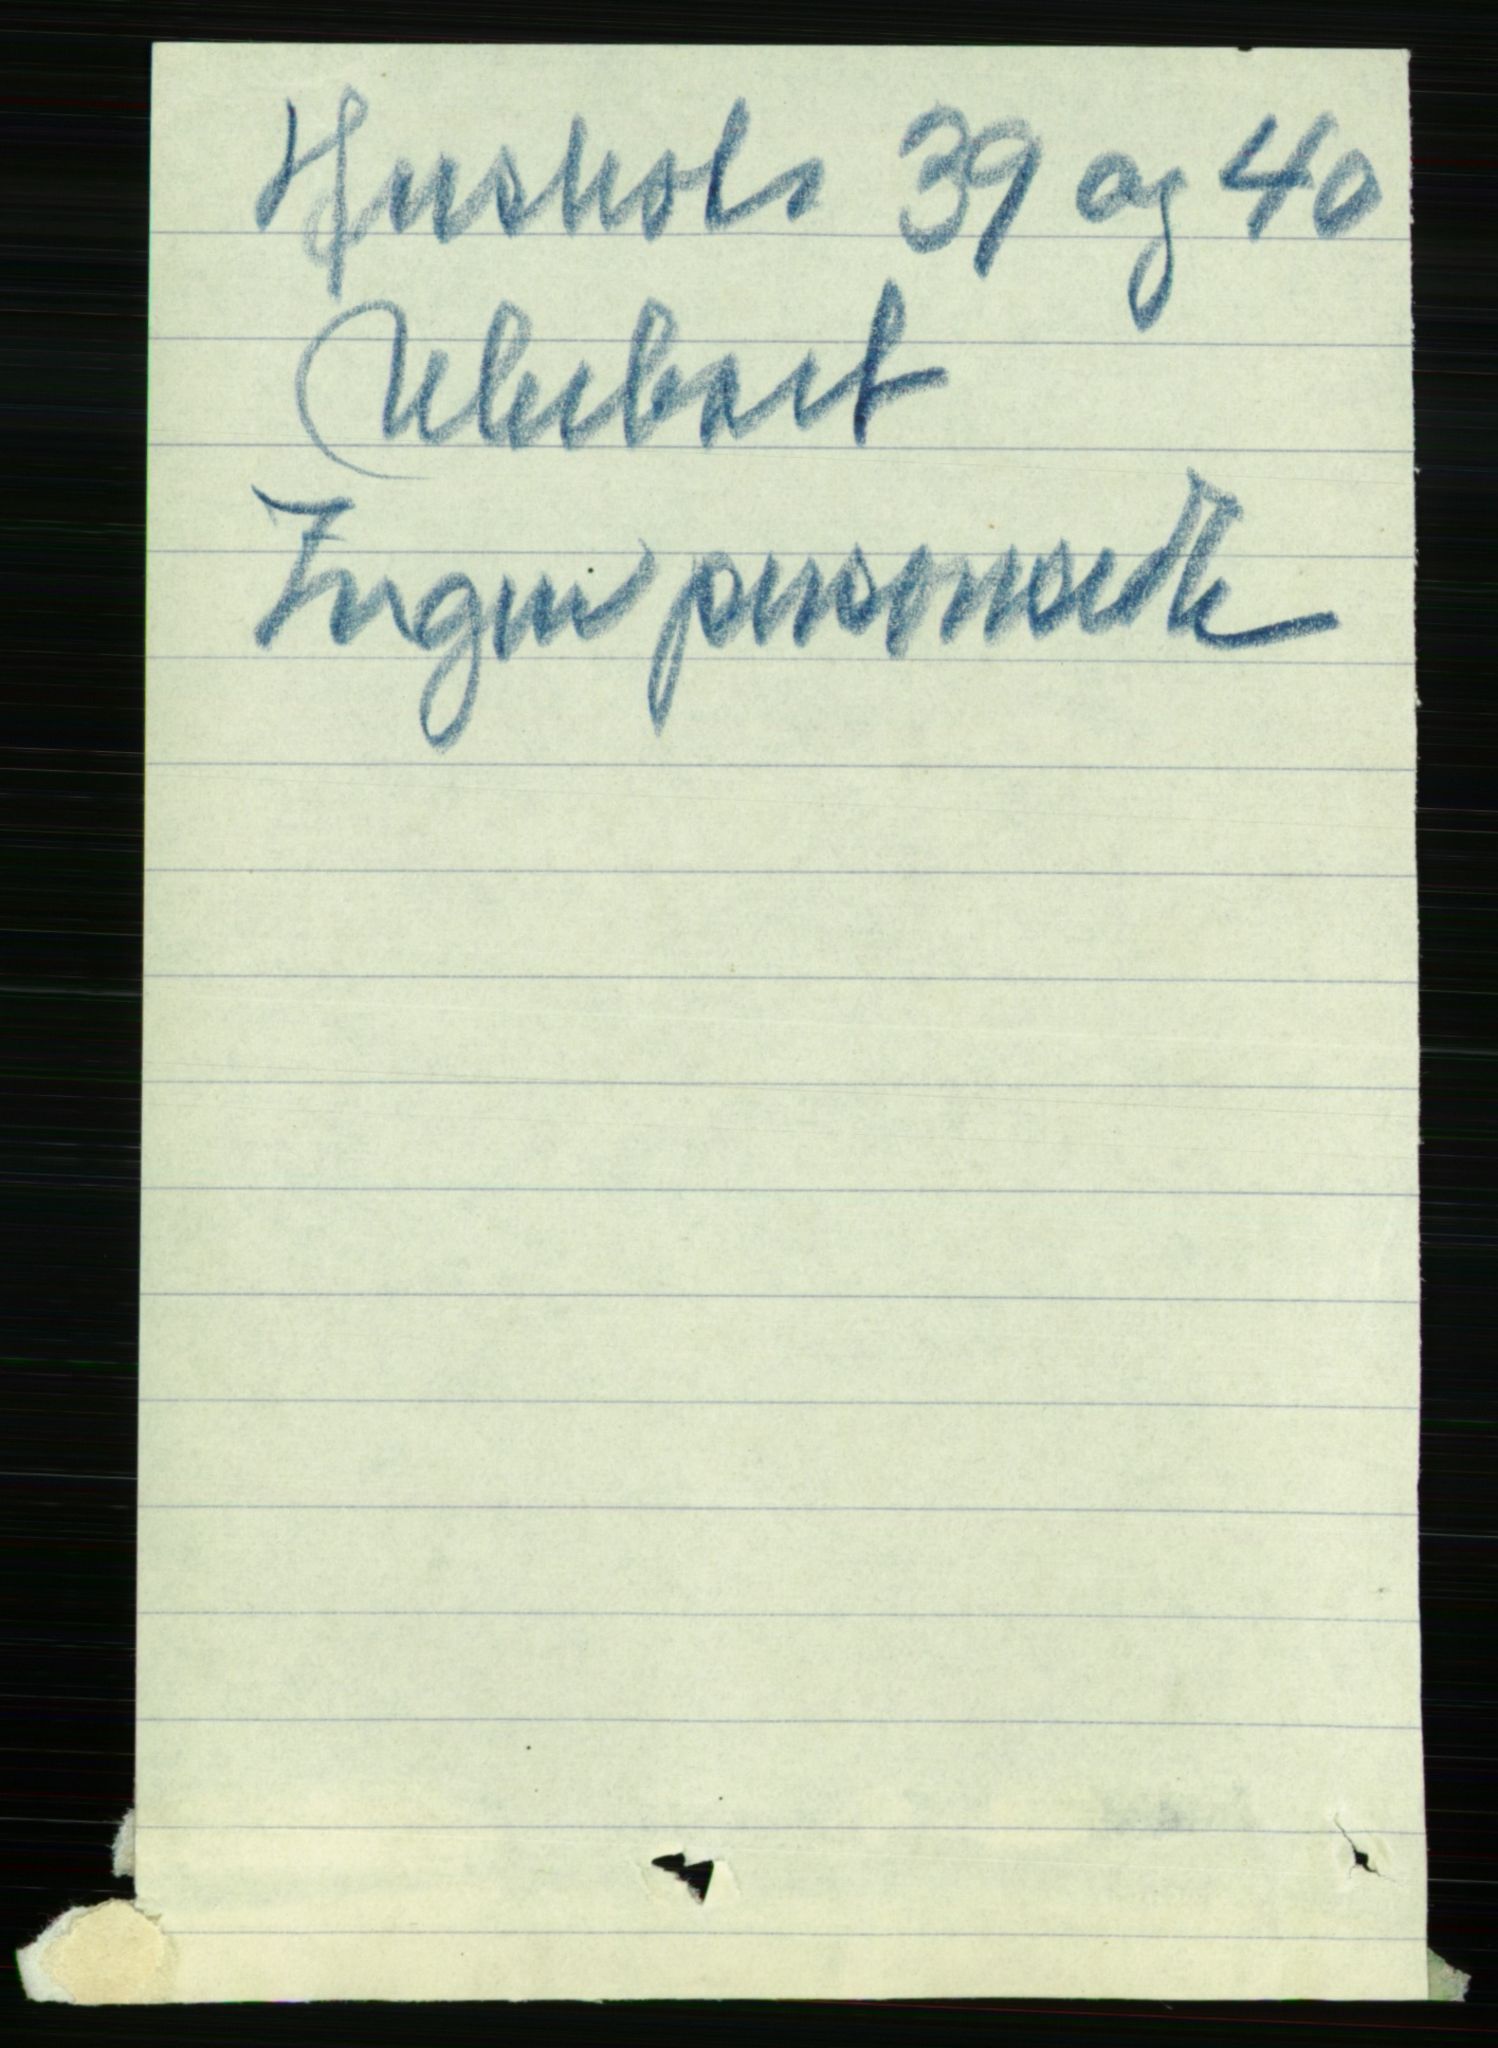 Hushols 39 og 40
Ubeboet
Ingen personsedle